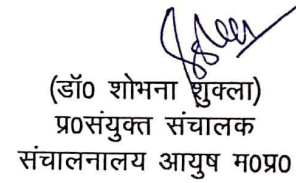 (डॉ0 शोभना शुक्ला)
प्र0संयुक्त संचालक
संचालनालय आयुष म0प्र0